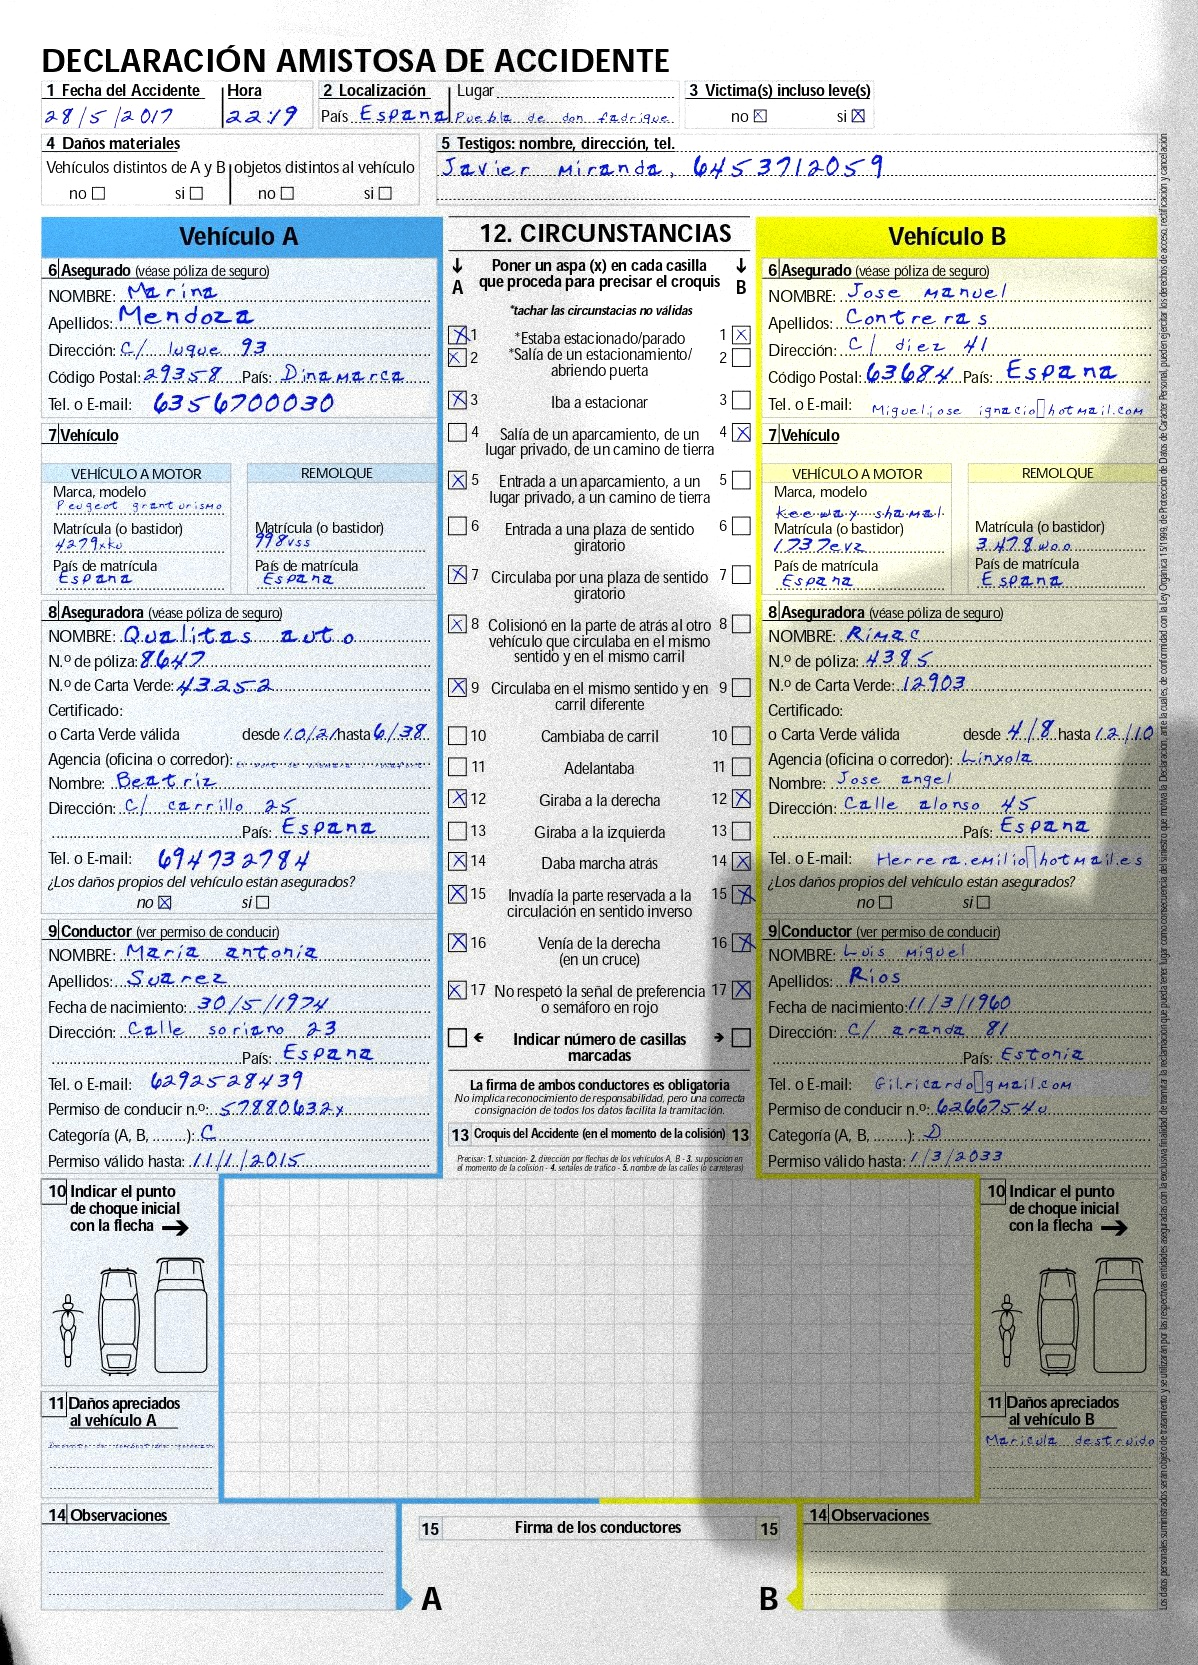 DECLARACIÓN AMISTOSA DE ACCIDENTE
1 Fecha del Accidente Hora 2 Localización Lugar 3 Victima(s) incluso leve(s)
28/5/2017 22:19 País Espana Puebla de don fadrique no ☒ si ☒
4 Daños materiales
Vehículos distintos de A y B objetos distintos al vehículo
no ☐ si ☐ no ☐ si ☐
5 Testigos: nombre, dirección, tel.
Javier Miranda, 6453712059
Vehículo A
6 Asegurado (véase póliza de seguro)
NOMBRE: Marina
Apellidos: Mendoza
Dirección: C/ luque 93
Código Postal: 29358 País: Dinamarca
Tel. o E-mail: 6356700030
7 Vehículo
VEHÍCULO A MOTOR REMOLQUE
Marca, modelo
Peugeot granturismo
Matrícula (o bastidor) Matrícula (o bastidor)
4279xku 998vss
País de matrícula País de matrícula
Espana Espana
8 Aseguradora (véase póliza de seguro)
NOMBRE: Qualitas auto
N.º de póliza: 8647
N.º de Carta Verde: 43252
Certificado:
o Carta Verde válida desde 10/21 hasta 6/38
Agencia (oficina o corredor):
Nombre: Beatriz
Dirección: C/ carrillo 25
País: Espana
Tel. o E-mail: 694732784
¿Los daños propios del vehículo están asegurados?
no ☒ si ☐
9 Conductor (ver permiso de conducir)
NOMBRE: María antonia
Apellidos: Suarez
Fecha de nacimiento: 30/5/1974
Dirección: Calle soriano 23
País: Espana
Tel. o E-mail: 6292528439
Permiso de conducir n.º: 57880632x
Categoría (A, B, ........): C
Permiso válido hasta: 11/1/2015
10 Indicar el punto
de choque inicial
con la flecha ➔
11 Daños apreciados
al vehículo A
14 Observaciones
12. CIRCUNSTANCIAS
↓ Poner un aspa (x) en cada casilla ↓
A que proceda para precisar el croquis B
*tachar las circunstacias no válidas
☒ 1 *Estaba estacionado/parado 1 ☒
☒ 2 *Salía de un estacionamiento/ 2 ☐
abriendo puerta
☒ 3 Iba a estacionar 3 ☐
☐ 4 Salía de un aparcamiento, de un 4 ☒
lugar privado, de un camino de tierra
☒ 5 Entrada a un aparcamiento, a un 5 ☐
lugar privado, a un camino de tierra
☐ 6 Entrada a una plaza de sentido 6 ☐
giratorio
☒ 7 Circulaba por una plaza de sentido 7 ☐
giratorio
☒ 8 Colisionó en la parte de atrás al otro 8 ☐
vehículo que circulaba en el mismo
sentido y en el mismo carril
☒ 9 Circulaba en el mismo sentido y en 9 ☐
carril diferente
☐ 10 Cambiaba de carril 10 ☐
☐ 11 Adelantaba 11 ☐
☒ 12 Giraba a la derecha 12 ☒
☐ 13 Giraba a la izquierda 13 ☐
☒ 14 Daba marcha atrás 14 ☒
☒ 15 Invadía la parte reservada a la 15 ☒
circulación en sentido inverso
☒ 16 Venía de la derecha 16 ☒
(en un cruce)
☒ 17 No respetó la señal de preferencia 17 ☒
o semáforo en rojo
☐ ← Indicar número de casillas → ☐
marcadas
La firma de ambos conductores es obligatoria
No implica reconocimiento de responsabilidad, pero una correcta
consignación de todos los datos facilita la tramitación.
13 Croquis del Accidente (en el momento de la colisión) 13
Precisar: 1. situación- 2. dirección por flechas de los vehículos A, B - 3. su posición en
el momento de la colisión - 4. señales de tráfico - 5. nombre de las calles (o carreteras)
15 Firma de los conductores 15
A B
Vehículo B
6 Asegurado (véase póliza de seguro)
NOMBRE: Jose manuel
Apellidos: Contreras
Dirección: C/ diez 41
Código Postal: 63684 País: Espana
Tel. o E-mail: Migueljose ignacio▯hotmail.com
7 Vehículo
VEHÍCULO A MOTOR REMOLQUE
Marca, modelo
keeway shamal
Matrícula (o bastidor) Matrícula (o bastidor)
1737evz 3478woo
País de matrícula País de matrícula
Espana Espana
8 Aseguradora (véase póliza de seguro)
NOMBRE: Rimac
N.º de póliza: 4385
N.º de Carta Verde: 12903
Certificado:
o Carta Verde válida desde 4/8 hasta 12/10
Agencia (oficina o corredor): Linxola
Nombre: Jose angel
Dirección: Calle alonso 45
País: Espana
Tel. o E-mail: Herrera.emilio▯hotmail.es
¿Los daños propios del vehículo están asegurados?
no ☐ si ☐
9 Conductor (ver permiso de conducir)
NOMBRE: Luis miguel
Apellidos: Rios
Fecha de nacimiento: 11/3/1960
Dirección: C/ aranda 81
País: Estonia
Tel. o E-mail: Gilricardo▯gmail.com
Permiso de conducir n.º: 62667540
Categoría (A, B, ........): D
Permiso válido hasta: 1/3/2033
10 Indicar el punto
de choque inicial
con la flecha ➔
11 Daños apreciados
al vehículo B
Maricula destruido
14 Observaciones